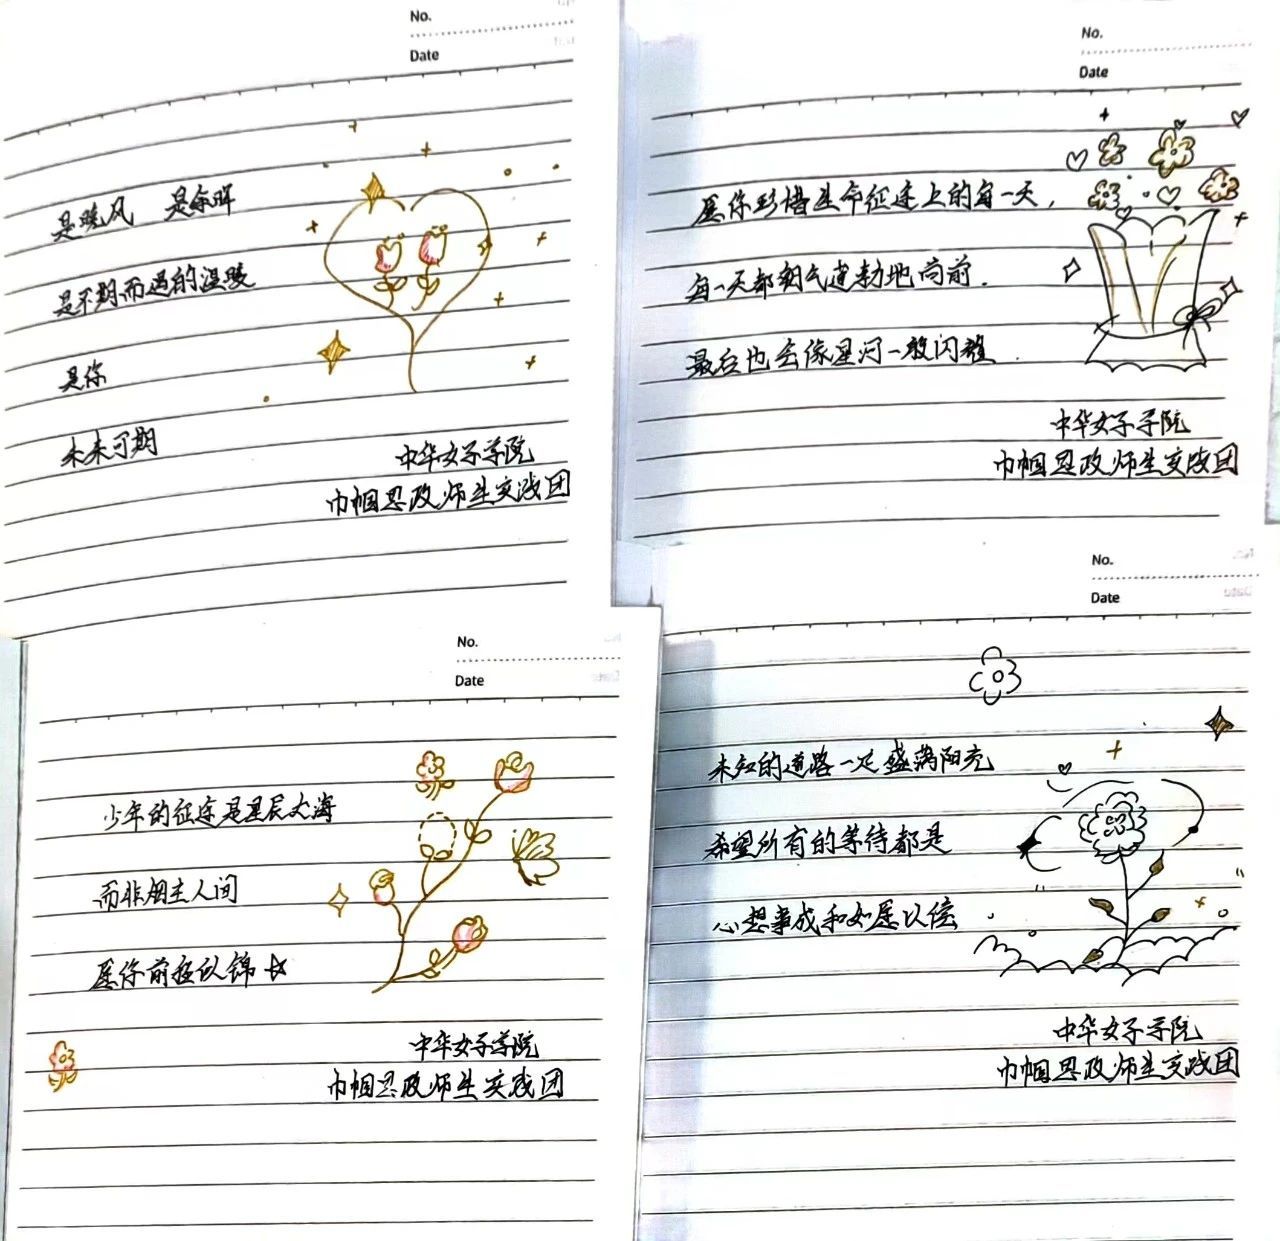 No.
Date
是晚风 是余晖
是不期而遇的温暖
是你
未来可期
中华女子学院
巾帼思政师生实践团
No.
Date
愿你珍惜生命征途上的每一天，
每一天都朝气遒勃地向前.
最后也会像星河一般闪耀.
中华女子学院
巾帼思政师生实践团
No.
Date
少年的征途是星辰大海
而非烟尘人间
愿你前程似锦
中华女子学院
巾帼思政师生实践团
No.
Date
未知的道路一定盛满阳光
希望所有的等待都是
心想事成和如愿以偿
中华女子学院
巾帼思政师生实践团